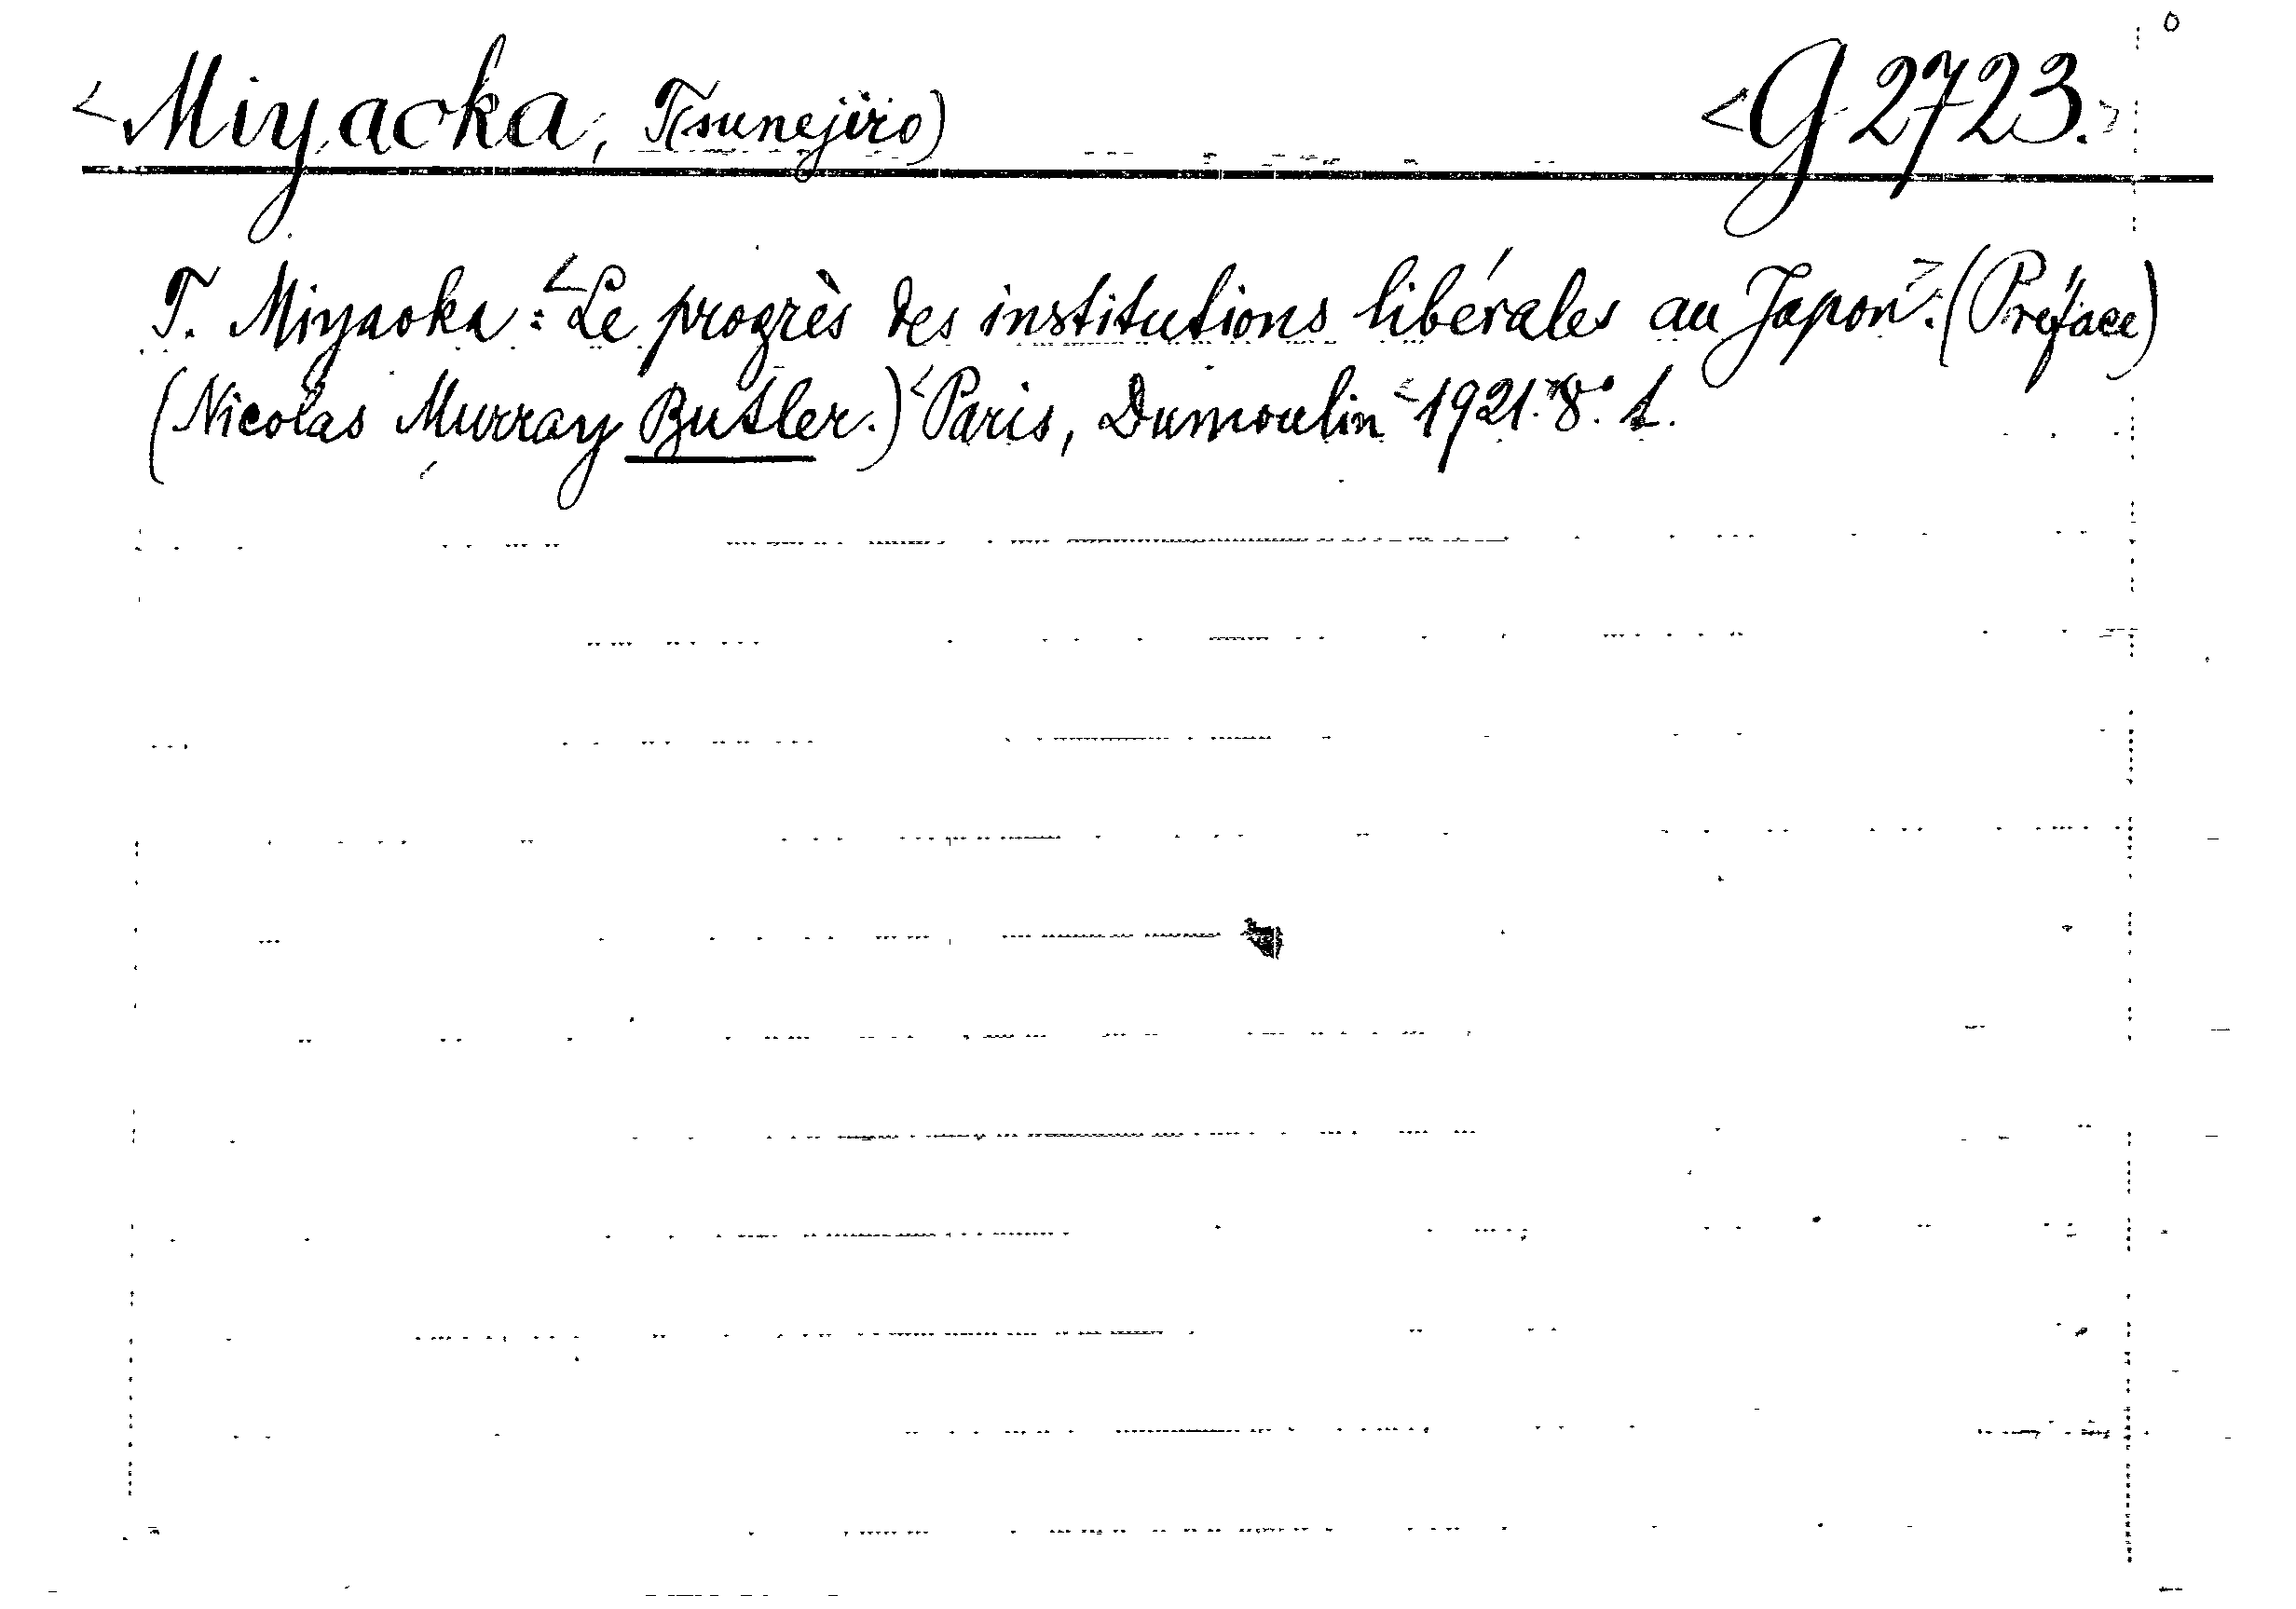 <Miyaoka, T(sunejiro) <G 2723.>
T. Miyaoka: <Le progrès des institutions libérales au Japon>. (Préface)
(Nicolas Murray Butler.) <Paris, Dumoulin <1921.> 8°. 1.